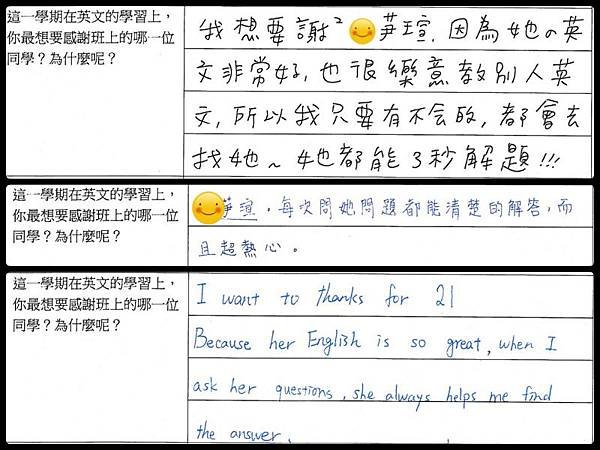 這一學期在英文的學習上，
你最想要感謝班上的哪一位
同學？為什麼呢？
我想要謝²瑄，因為她の英
文非常好，也很樂意教別人英
文，所以我只要有不会的，都會去
找她～她都能3秒解題!!!
這一學期在英文的學習上，
你最想要感謝班上的哪一位
同學？為什麼呢？
瑄，每次問她問題都能清楚的解答，而
且超熱心。
這一學期在英文的學習上，
你最想要感謝班上的哪一位
同學？為什麼呢？
I want to thanks for 21
Because her English is so great, when I
ask her questions, she always helps me find
the answer.